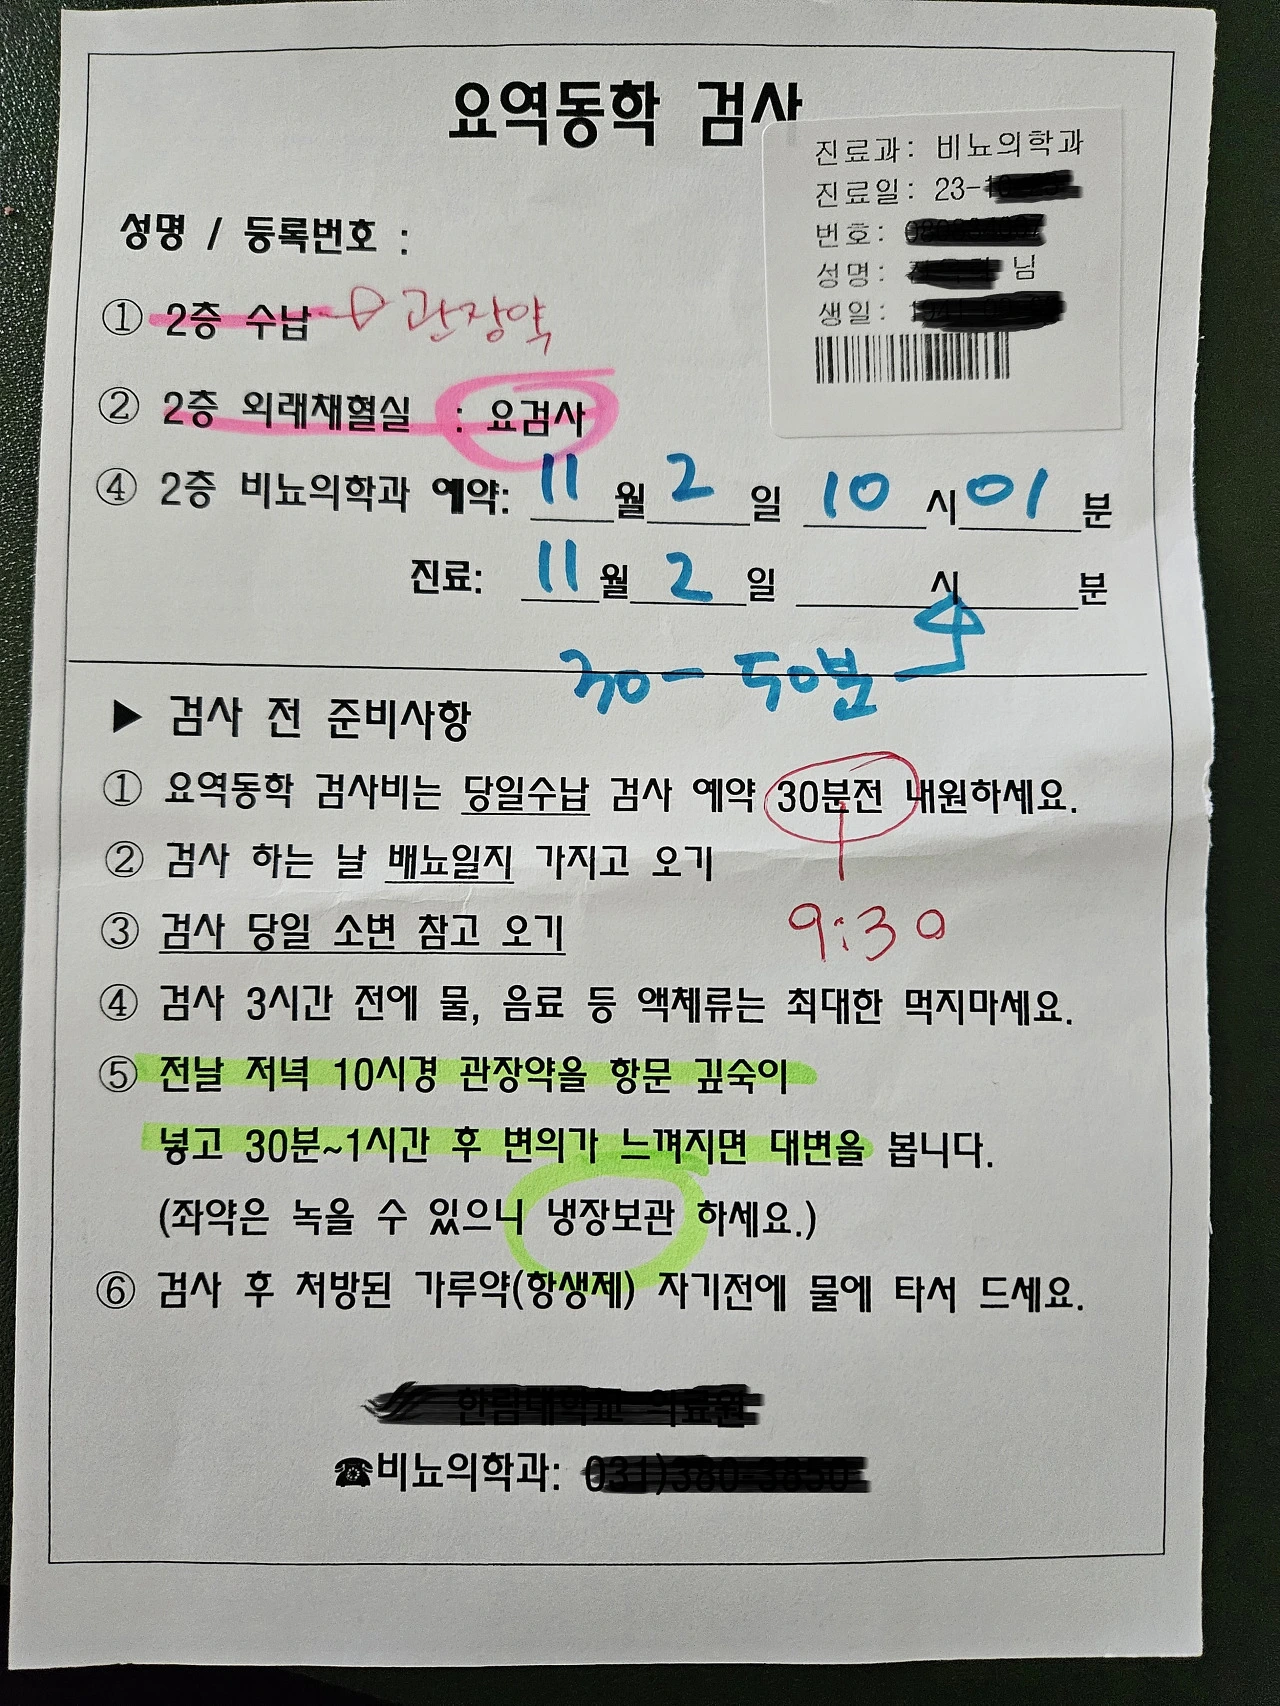 요역동학 검사
진료과: 비뇨의학과
진료일: 23-
번호:
성명: 님
생일:
성명 / 등록번호 :
① 2층 수납 → 관장약
② 2층 외래채혈실 : 요검사
④ 2층 비뇨의학과 예약: 11월 2일 10시 01분
진료: 11월 2일 시 분
30- 50분
▶ 검사 전 준비사항
① 요역동학 검사비는 당일수납 검사 예약 30분전 내원하세요.
② 검사 하는 날 배뇨일지 가지고 오기
9:30
③ 검사 당일 소변 참고 오기
④ 검사 3시간 전에 물, 음료 등 액체류는 최대한 먹지마세요.
⑤ 전날 저녁 10시경 관장약을 항문 깊숙이
넣고 30분~1시간 후 변의가 느껴지면 대변을 봅니다.
(좌약은 녹을 수 있으니 냉장보관 하세요.)
⑥ 검사 후 처방된 가루약(항생제) 자기전에 물에 타서 드세요.
☎비뇨의학과: